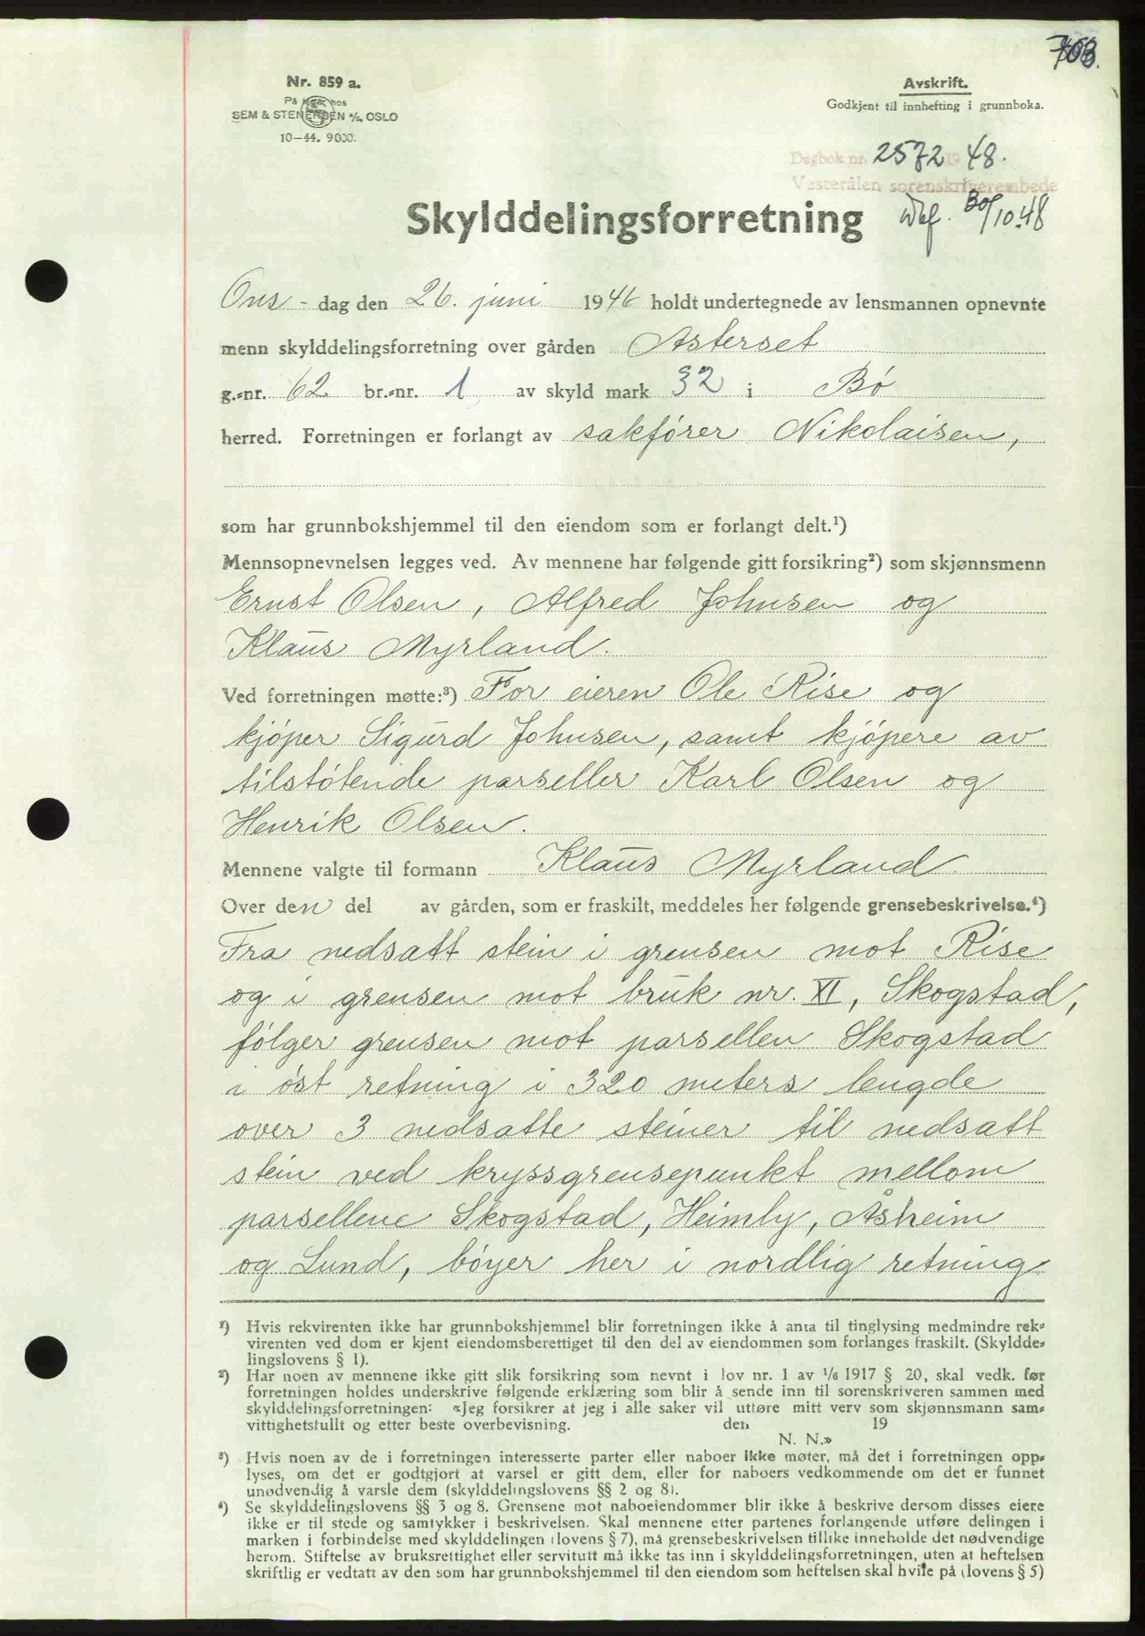 703.
Nr. 859 a.
På lager hos
SEM & STENERSEN A/S, OSLO
10-44. 9000.
Avskrift.
Godkjent til innhefting i grunnboka.
Dagbok nr. 2572 19 48.
Vesterålen sorenskriverembede
30/10.48
Skylddelingsforretning
Ons - dag den 26. juni 1946 holdt undertegnede av lensmannen opnevnte
menn skylddelingsforretning over gården Asterset
g.-nr. 62 br.-nr. 1 av skyld mark 32 i Bø
herred. Forretningen er forlangt av sakfører Nikolaisen,
som har grunnbokshjemmel til den eiendom som er forlangt delt.¹)
Mennsopnevnelsen legges ved. Av mennene har følgende gitt forsikring²) som skjønnsmenn
Ernst Olsen, Alfred Johnsen og
Klaus Myrland.
Ved forretningen møtte:³) For eieren Ole Rise og
kjøper Sigurd Johnsen, samt kjøpere av
tilstøtende parseller Karl Olsen og
Henrik Olsen.
Mennene valgte til formann Klaus Myrland.
Over den del av gården, som er fraskilt, meddeles her følgende grensebeskrivelse.⁴)
Fra nedsatt stein i grensen mot Rise
og i grensen mot bruk nr. XI, Skogstad,
følger grensen mot parsellen Skogstad
i øst retning i 320 meters lengde
over 3 nedsatte steiner til nedsatt
stein ved kryssgrensepunkt mellom
parsellene Skogstad, Heimly, Åsheim
og Lund, bøyer her i nordlig retning
¹) Hvis rekvirenten ikke har grunnbokshjemmel blir forretningen ikke å anta til tinglysing medmindre rek-
virenten ved dom er kjent eiendomsberettiget til den del av eiendommen som forlanges fraskilt. (Skyldde-
lingslovens § 1).
²) Har noen av mennene ikke gitt slik forsikring som nevnt i lov nr. 1 av 1/6 1917 § 20, skal vedk. før
forretningen holdes underskrive følgende erklæring som blir å sende inn til sorenskriveren sammen med
skylddelingsforretningen: «Jeg forsikrer at jeg i alle saker vil utføre mitt verv som skjønnsmann sam-
vittighetsfullt og etter beste overbevisning. den 19
N. N.»
³) Hvis noen av de i forretningen interesserte parter eller naboer ikke møter, må det i forretningen opp-
lyses, om det er godtgjort at varsel er gitt dem, eller for naboers vedkommende om det er funnet
unødvendig å varsle dem (skylddelingslovens §§ 2 og 8).
⁴) Se skylddelingslovens §§ 3 og 8. Grensene mot naboeiendommer blir ikke å beskrive dersom disses eiere
ikke er til stede og samtykker i beskrivelsen. Skal mennene etter partenes forlangende utføre delingen i
marken i forbindelse med skylddelingen (lovens § 7), må grensebeskrivelsen tillike inneholde det nødvendige
herom. Stiftelse av bruksrettighet eller servitutt må ikke tas inn i skylddelingsforretningen, uten at heftelsen
skriftlig er vedtatt av den som har grunnbokshjemmel til den eiendom som heftelsen skal hvile på (lovens § 5)